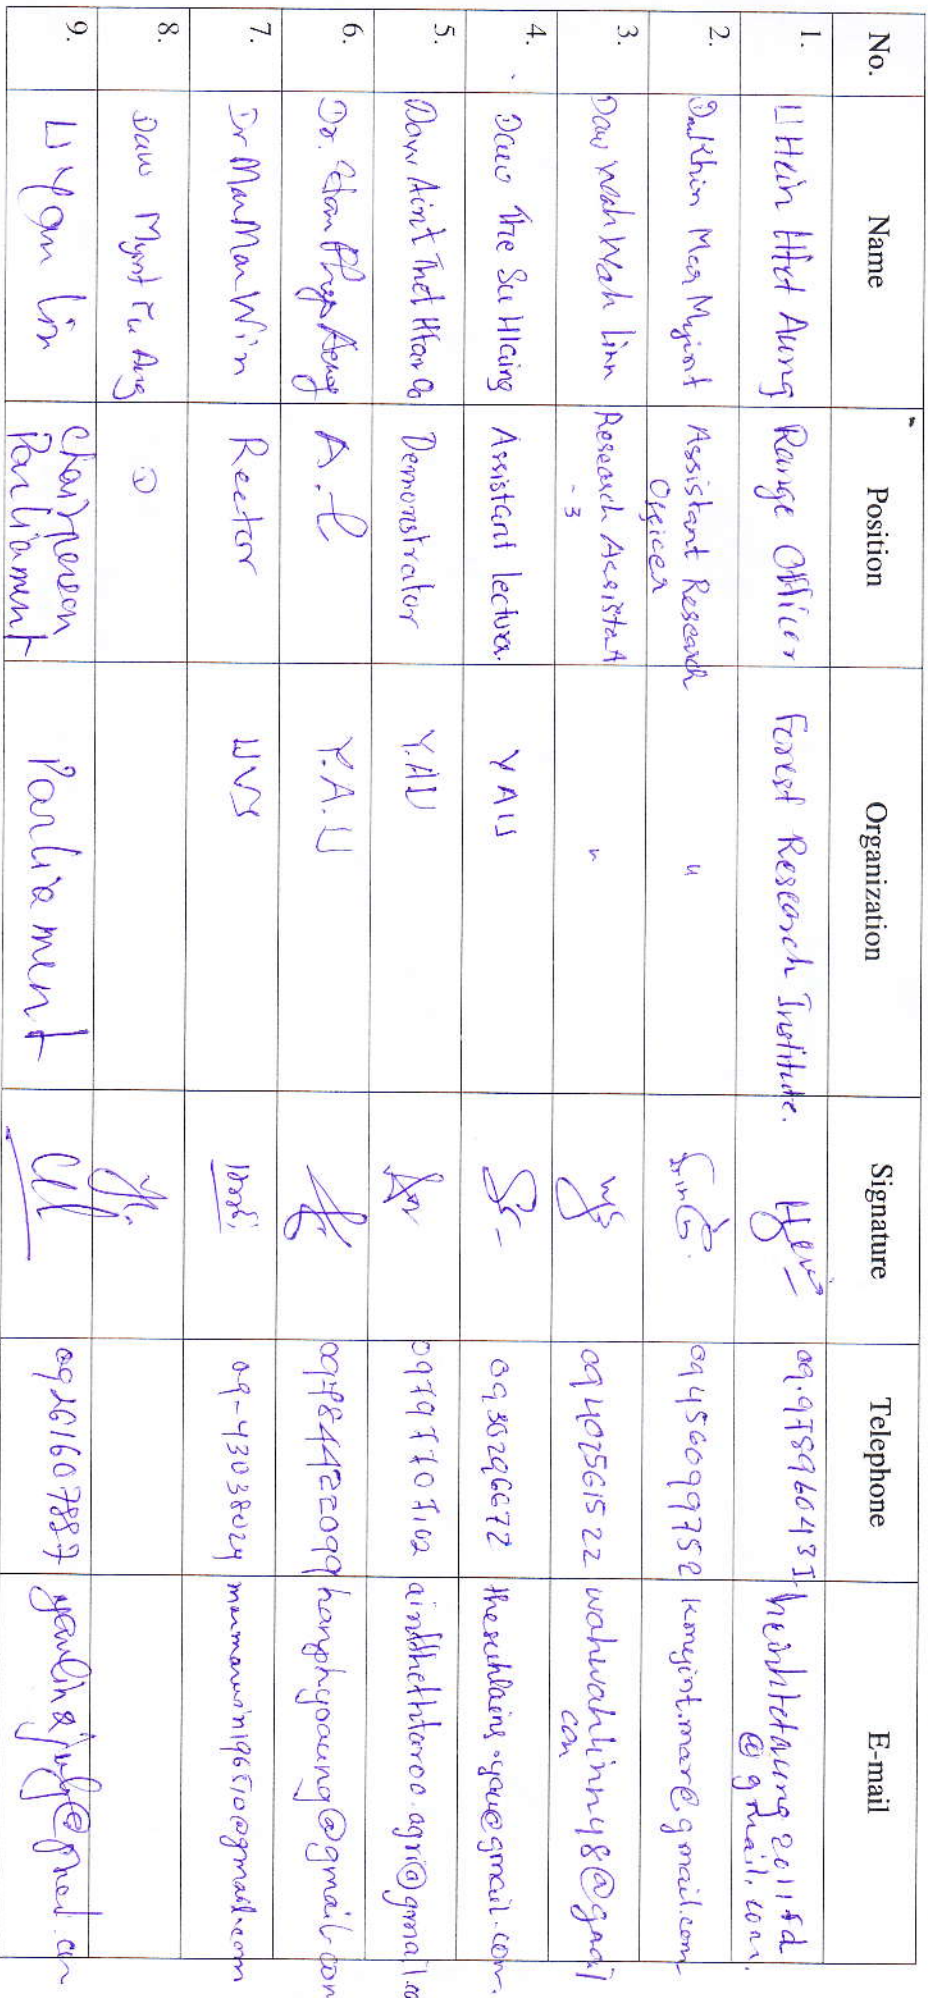 No. Name Position Organization Signature Telephone E-mail
1. U Hein Htet Aung Range Officer Forest Research Institute. 09.978960431 heinhtetaung2011fd
@gmail.com.
2. Daw Khin Mar Myint Assistant Research " 09456099752 kmyint.mar@gmail.com
Officer
3. Daw Wah Wah Linn Research Assistant " 09402561522 wahwahlinn48@gmail
-3 com
4. Daw The Su Hlaing Assistant lecturer. YAU 0930296672 thesuhlaing.yau@gmail.com.
5. Daw Aint Thet Htar Oo Demonstrator Y.AU 09797707102 aintthethtaroo.agri@gmail.co
6. Dr. Phyo Aung A.L Y.A.U hanphyoaung@gmail.com
7. Dr Mar Mar Win Rector UVS 09-43038024 marmarwin19651@gmail.com
8. Daw Myint Aung
9. U Yan Lin Chairperson Parliament 09261607887
Parliament